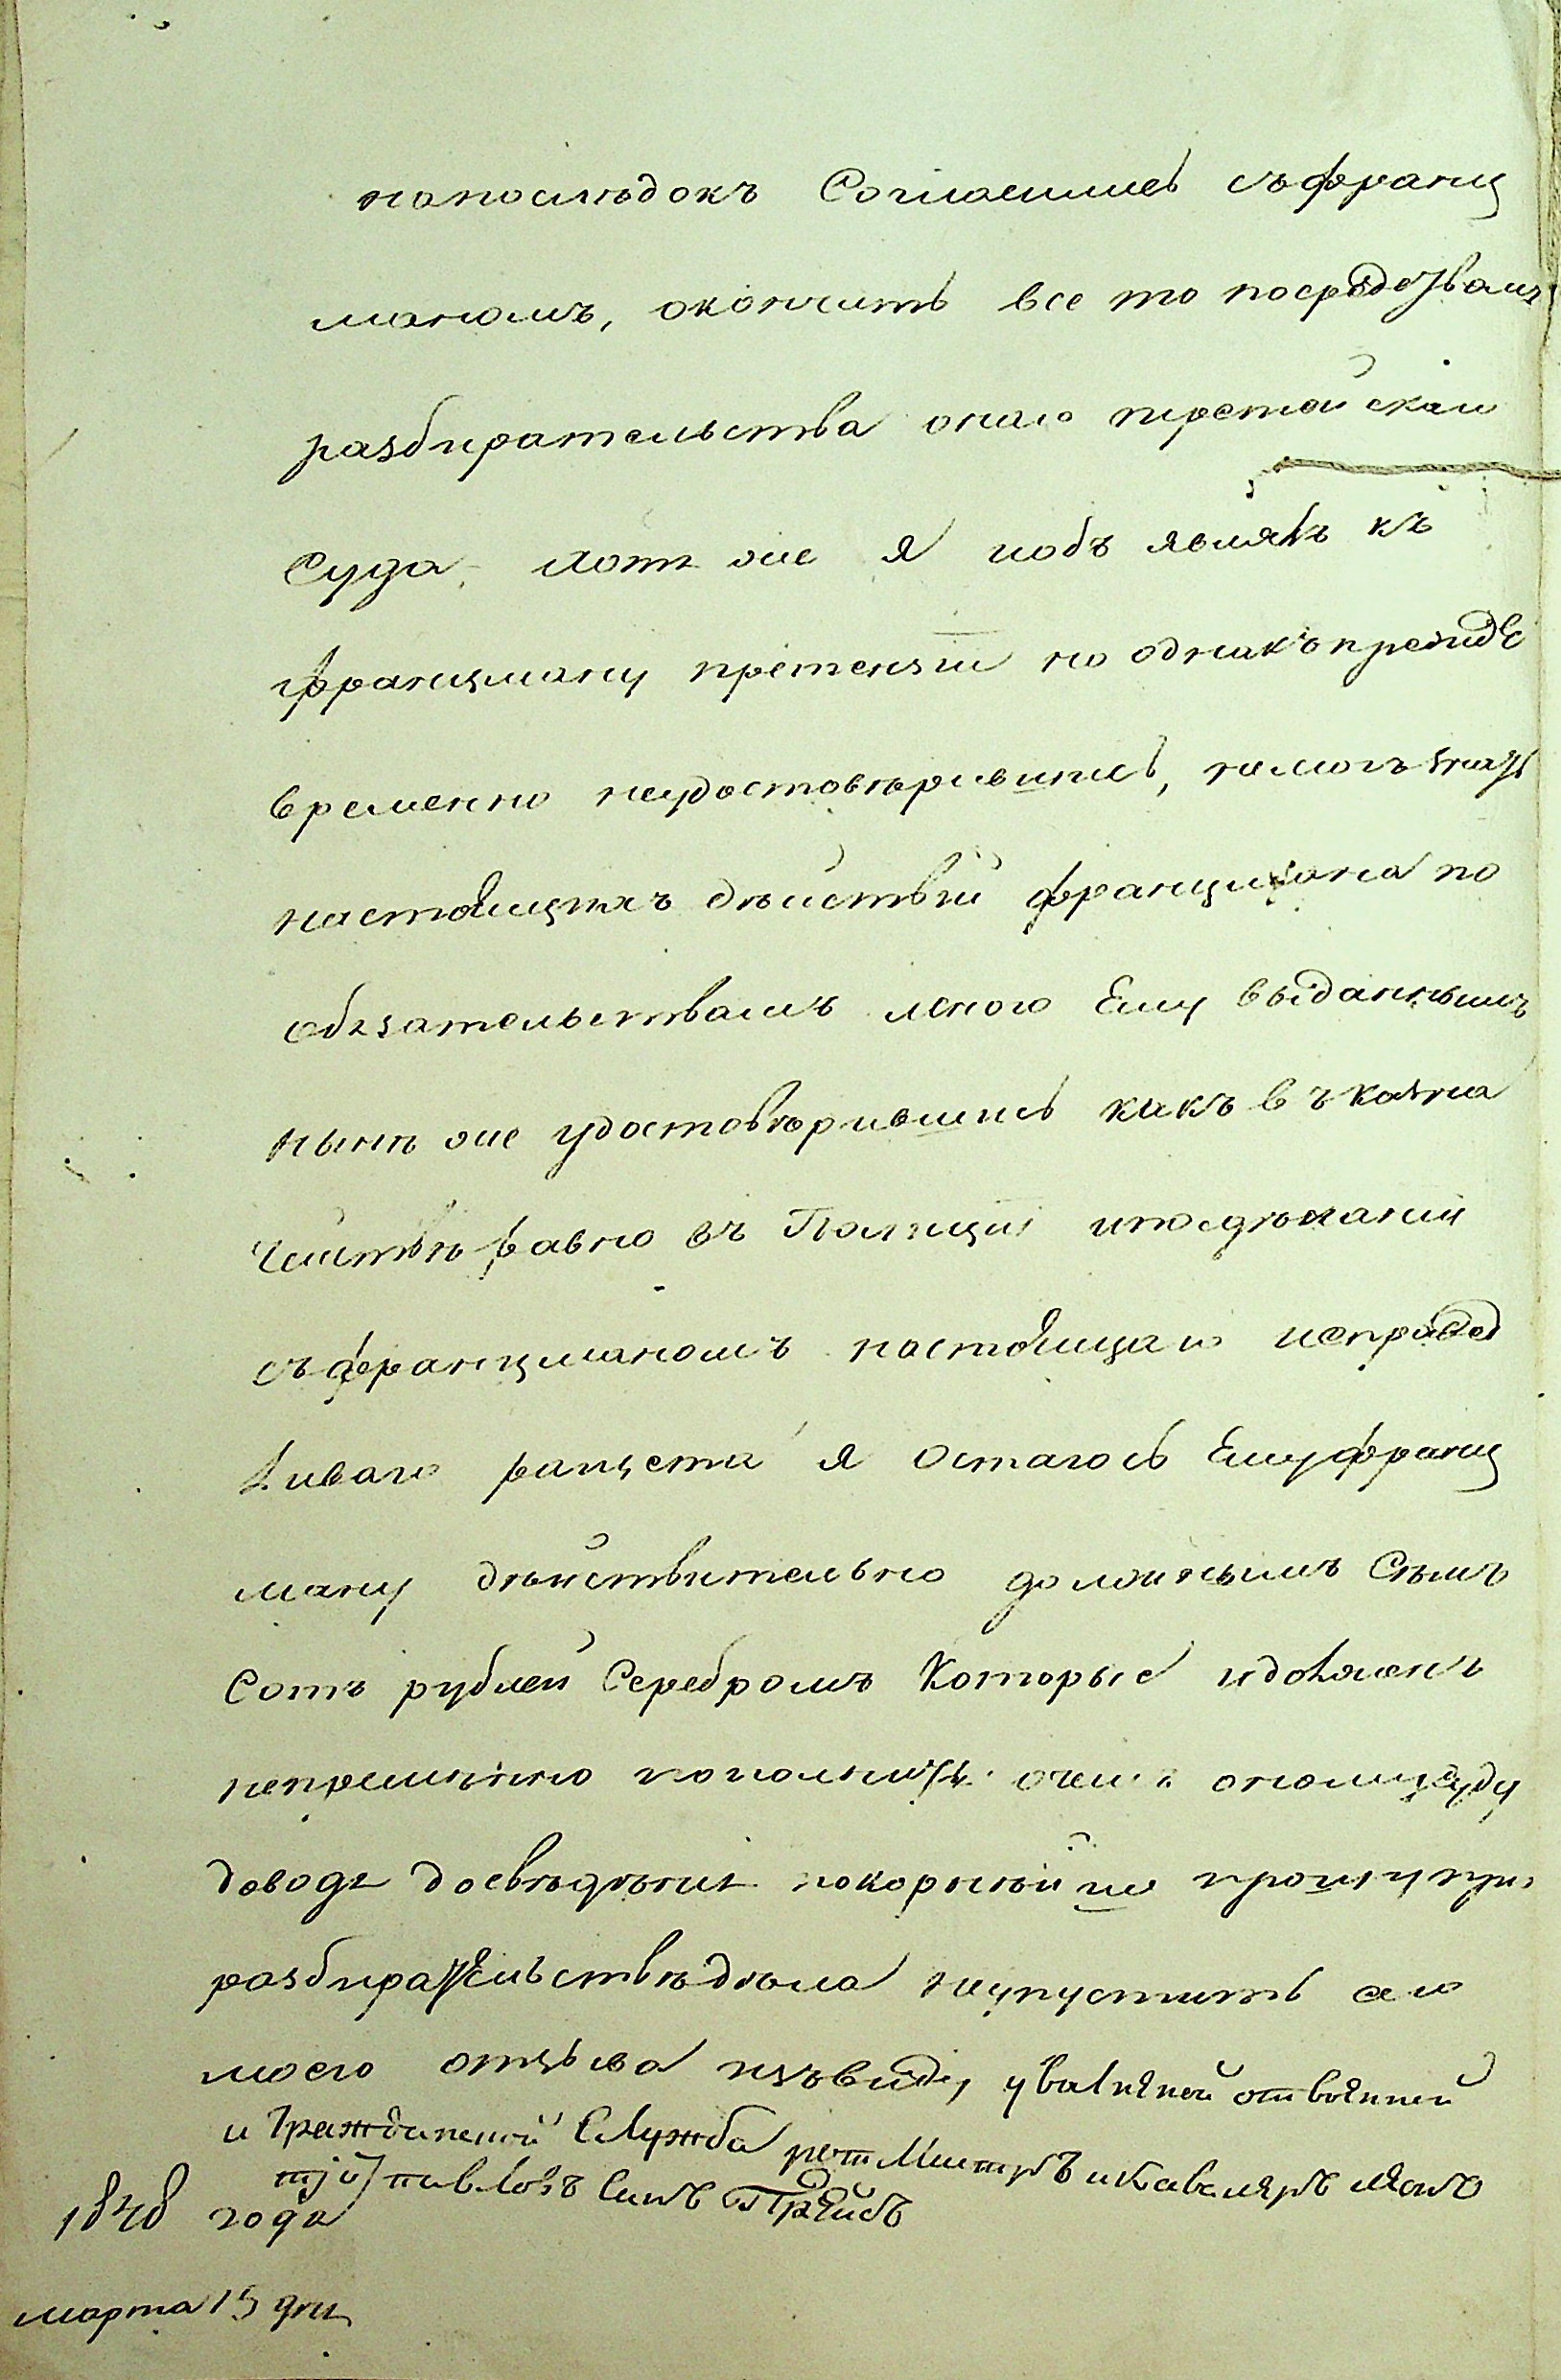 напослѣдокъ Согласились съ франц
маномъ, окончить все то посрѣдствамъ
разбирательства онаго третейскаго
Суда, хотя же я и объ являлъ къ
францману претензіи но однакъ прежде
временно неудостовѣрившись, немогъ знать
настоящихъ дѣйствій францмана по
обязательствамъ мною Ему выданнымъ
нынѣ же удостовѣрившись какъ въ казна
чействѣ равно въ Полиціи ипосдѣлании
съ францманомъ настоящаго исправед
ливаго ращета я Остаюсь Ему франц
ману дѣйствительно должнымъ Сѣмъ
Сотъ рублей Серебромъ Которые идолженъ
непремѣнно пополнить очемъ ономусуду
доводя досвѣдѣнія покорнѣйше прошу при
разбирательствѣ дѣла неупустить сего
моего отзыва изъ виду, уволеной отвоенной
и Гражданской Служба ротмистръ и Кавалеръ
павловъ Сынъ
1848 года
марта 15 дня